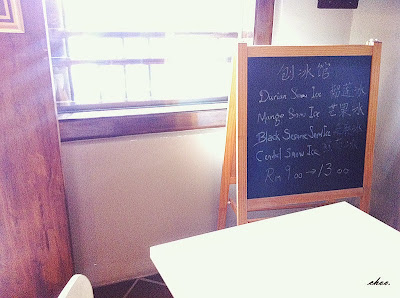 刨冰馆
Durian Snow Ice 榴莲冰
Mango Snow Ice 芒果冰
Black Sesame Snow Ice
Cendol Snow Ice
RM 9.00 → 13.00
choo.